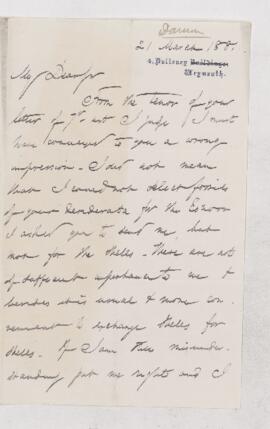 Damon
21 March 188
4, Pulteney Buildings
Weymouth.
My Dear Sir
From the tenor of your
letter of 7th ult I judge I must
have conveyed to you a wrong
impression - I did not mean
that I could not select fossils
of your Desiderata for the
I asked you to send me, but
not for the shells - These are not
of sufficient importance to me &
besides it is usual & more con
venient to exchange shells for
shells. If I am thus misunder
standing put me right and I